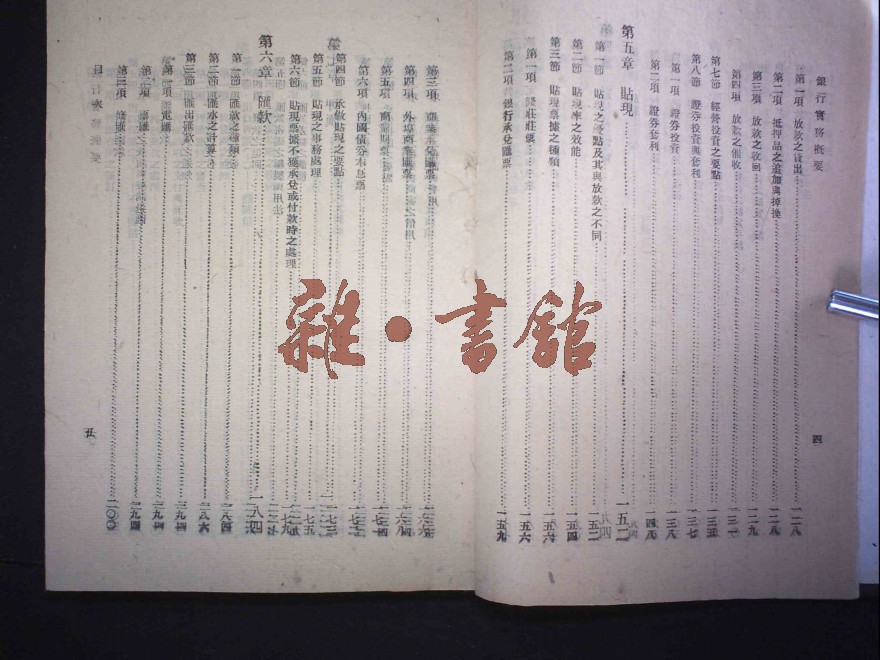 銀行實務概要
第一項 放款之貸出 一二八
第二項 抵押品之追加與掉換 一二八
第三項 放款之收回 一二九
第四項 放款之催收 一三一
第七節 經營投資之要點 一三五
第八節 證券投資與套利 一三七
第一項 證券投資 一三八
第二項 證券套利 一四八
第五章 貼現 一五二
第一節 貼現之優點及其與放款之不同 一五二
第二節 貼現率之效能 一五四
第三節 貼現票據之種類 一五六
第一項 莊票 一五六
第二項 銀行承兌匯票 一五九
四
第三項
第四項 外埠商業匯票 一六八
第五項 商業期票 一七一
第六項 內國債券本息票 一七二
第四節 承做貼現之要點
第五節 貼現之事務處理 一七五
第六節 貼現票據不獲承兌或付款時之處理
第六章 匯款 一八四
第一節 匯款之種類 一八四
第二節 匯水之計算 一八六
第三節 匯出匯款 一九四
第一項 電匯 一九四
第二項 一九四
第三項 二〇〇
目次
五
雜·書館